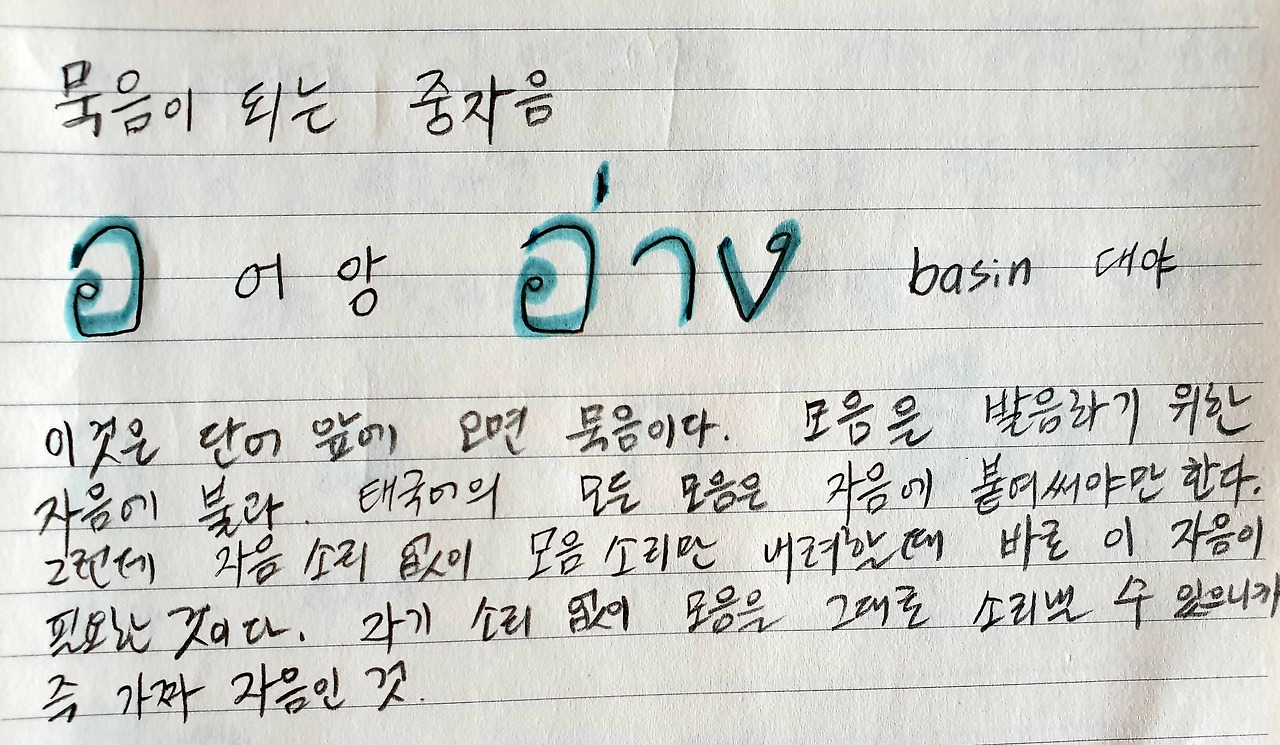 묵음이 되는 중자음
อ 어 앙 อ่าง basin 대야
이것은 단어 앞에 오면 묵음이다. 모음을 발음하기 위한
자음에 불과. 태국어의 모든 모음은 자음에 붙여써야만 한다.
그런데 자음 소리 없이 모음 소리만 내려할 때 바로 이 자음이
필요한 것이다. 자기 소리 없이 모음을 그대로 소리낼 수 있으니까
즉 가짜 자음인 것.